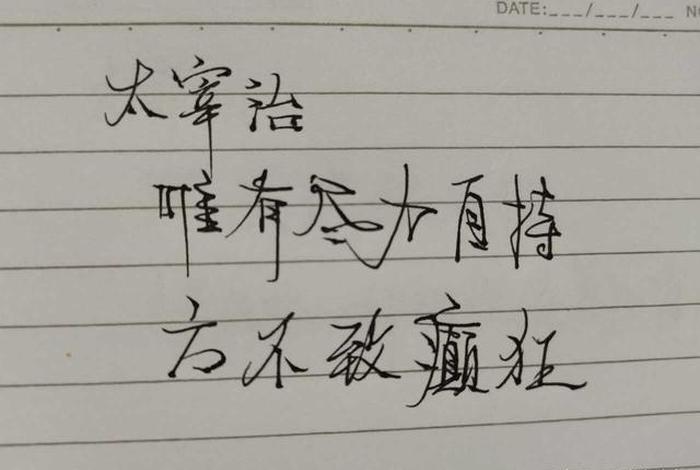 DATE:___/___/___ N
太宰治
唯有尽力自持
方不致癫狂